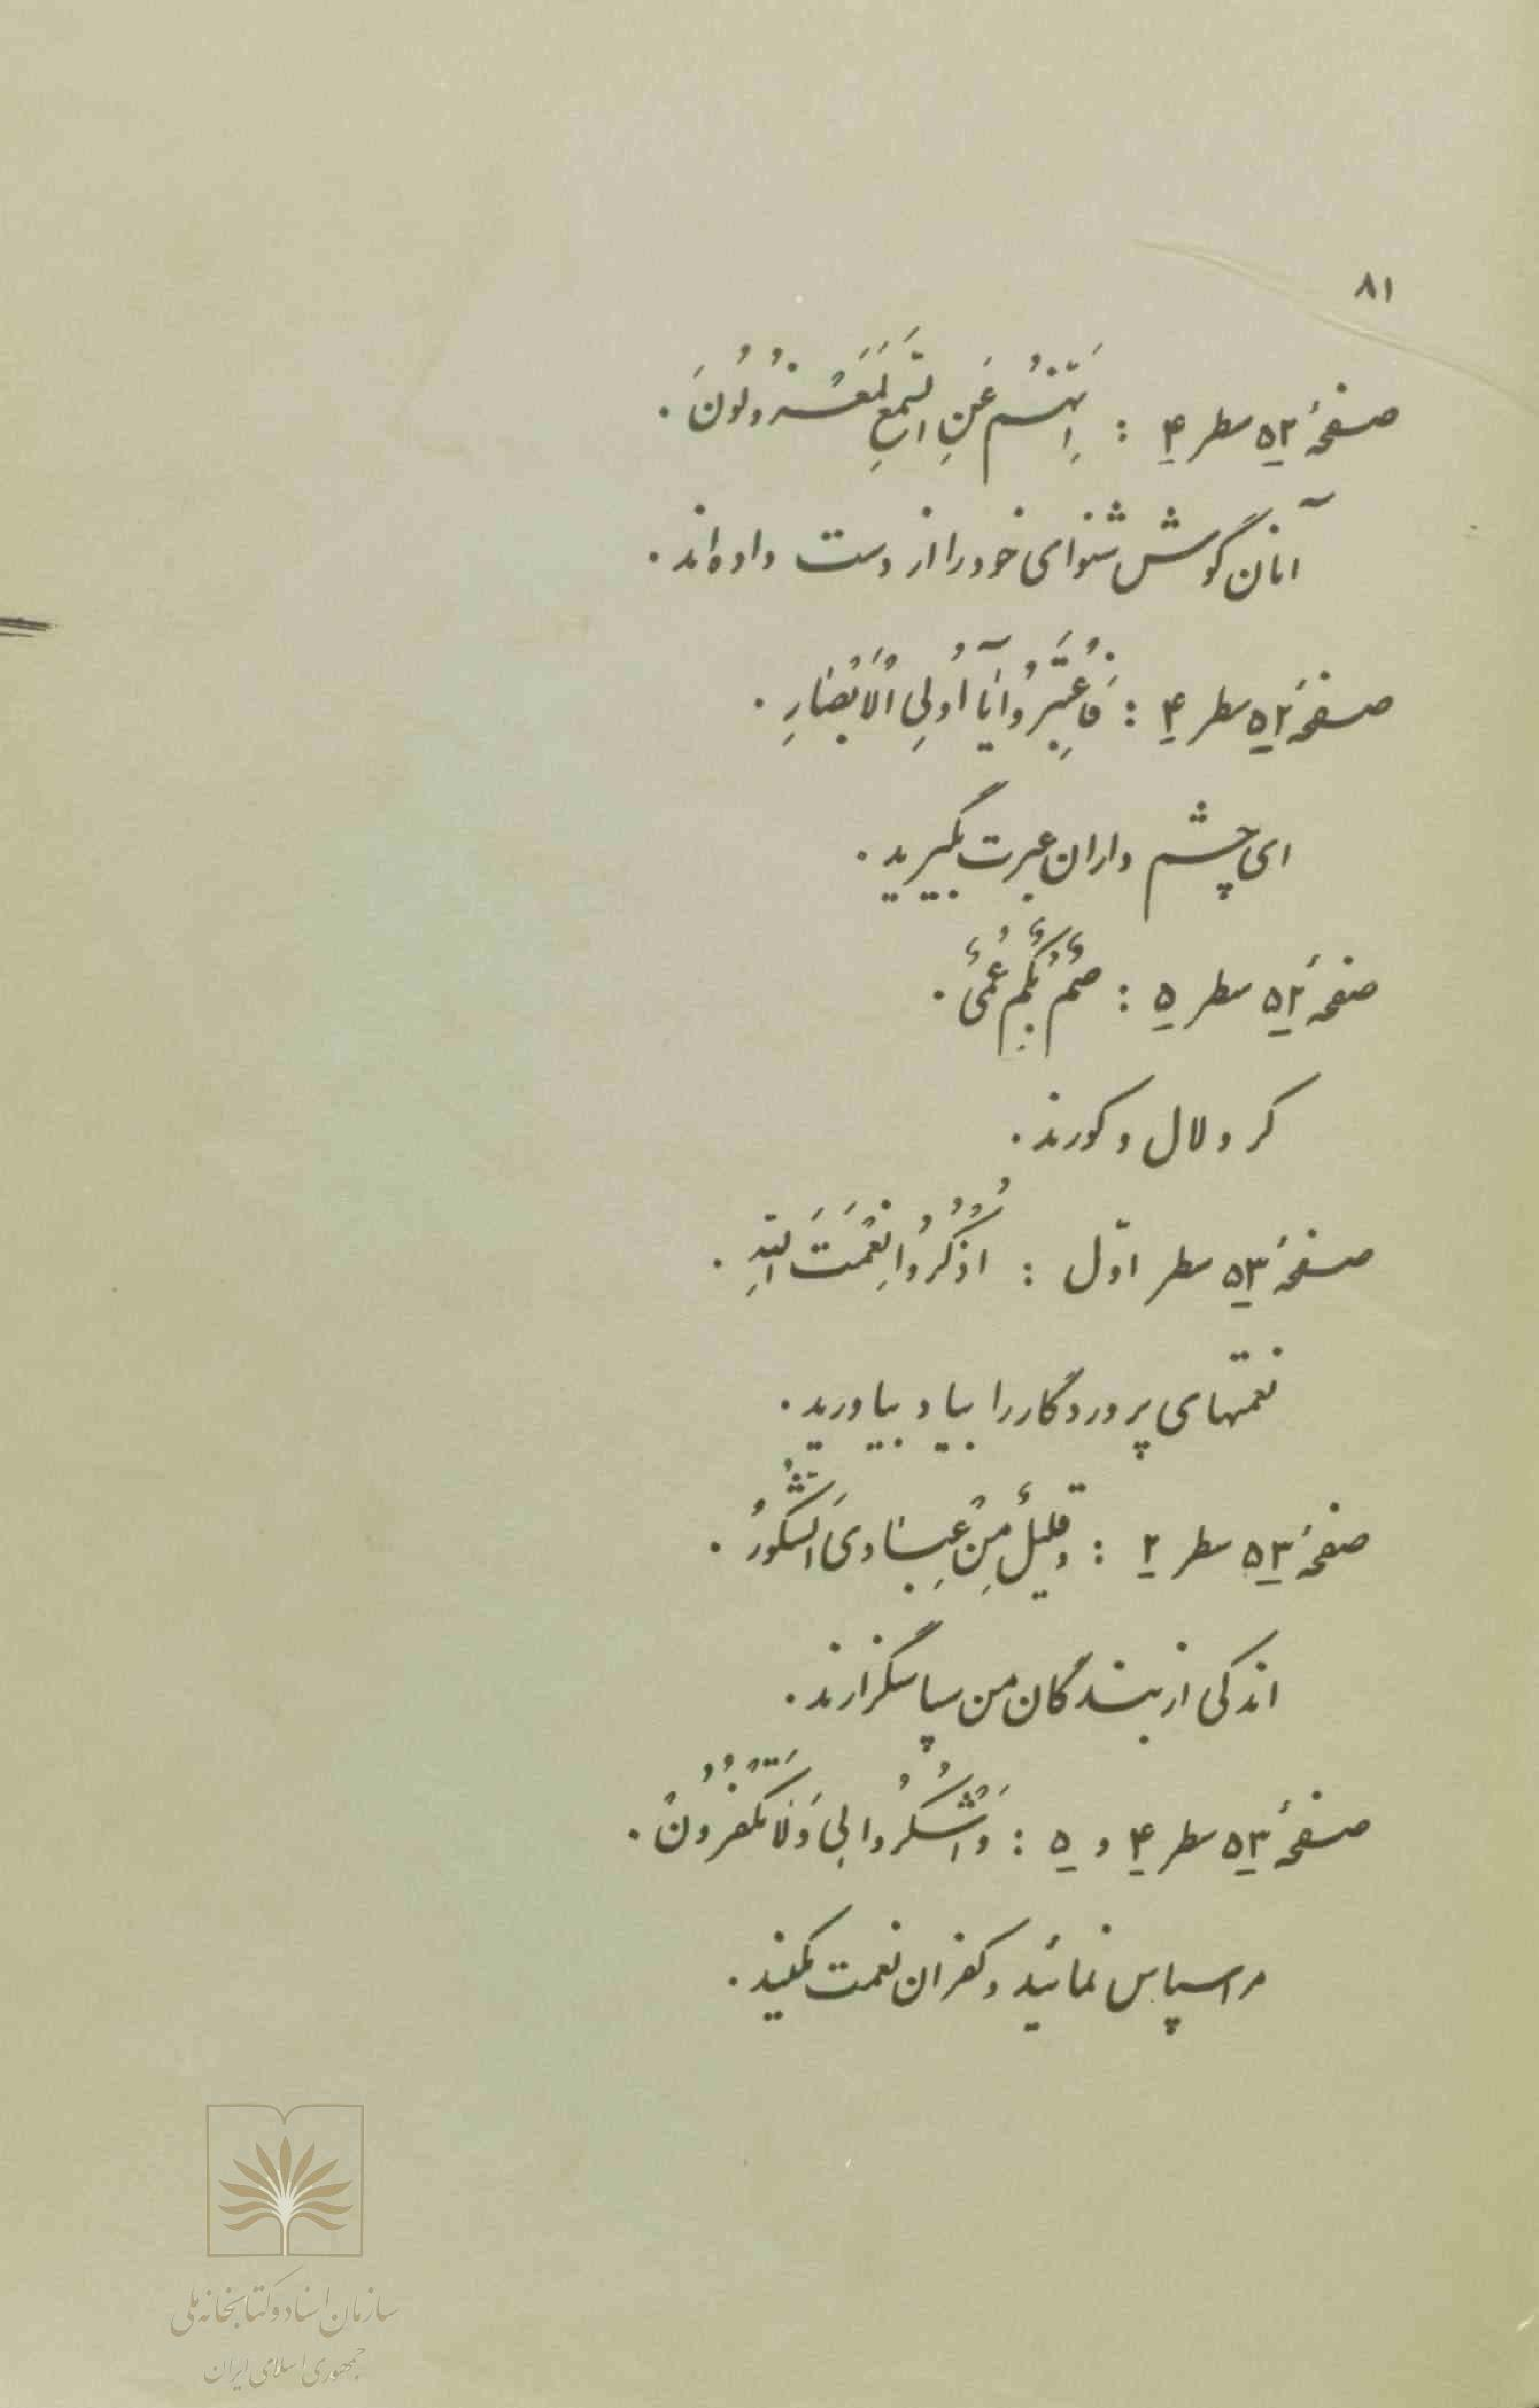 ۸۱
صفحۀ ۵۲ سطر ۴ : اِنَّهُمْ عَنِ السَّمْعِ لَمَعْزُولُونَ .
آنان گوش شنوای خود را از دست داده‌اند .
صفحۀ ۵۲ سطر ۴ : فَاعْتَبِرُوا یٰآ اُولِی الْاَبْصٰارِ .
ای چشم داران عبرت بگیرید .
صفحۀ ۵۲ سطر ۵ : صُمٌّ بُکْمٌ عُمْیٌ .
کر و لال و کورند .
صفحۀ ۵۳ سطر اوّل : اُذْکُرُوا نِعْمَتَ اللّٰهِ .
نعمتهای پروردگار را بیاد بیاورید .
صفحۀ ۵۳ سطر ۲ : وَ قَلیلٌ مِنْ عِبٰادیَ الشَّکُورُ .
اندکی از بندگان من سپاسگزارند .
صفحۀ ۵۳ سطر ۴ و ۵ : وَ اشْکُرُوا لِی وَ لٰا تَکْفُرُونْ .
مرا سپاس نمائید و کفران نعمت مکنید .
سازمان اسناد و کتابخانه ملی
جمهوری اسلامی ایران